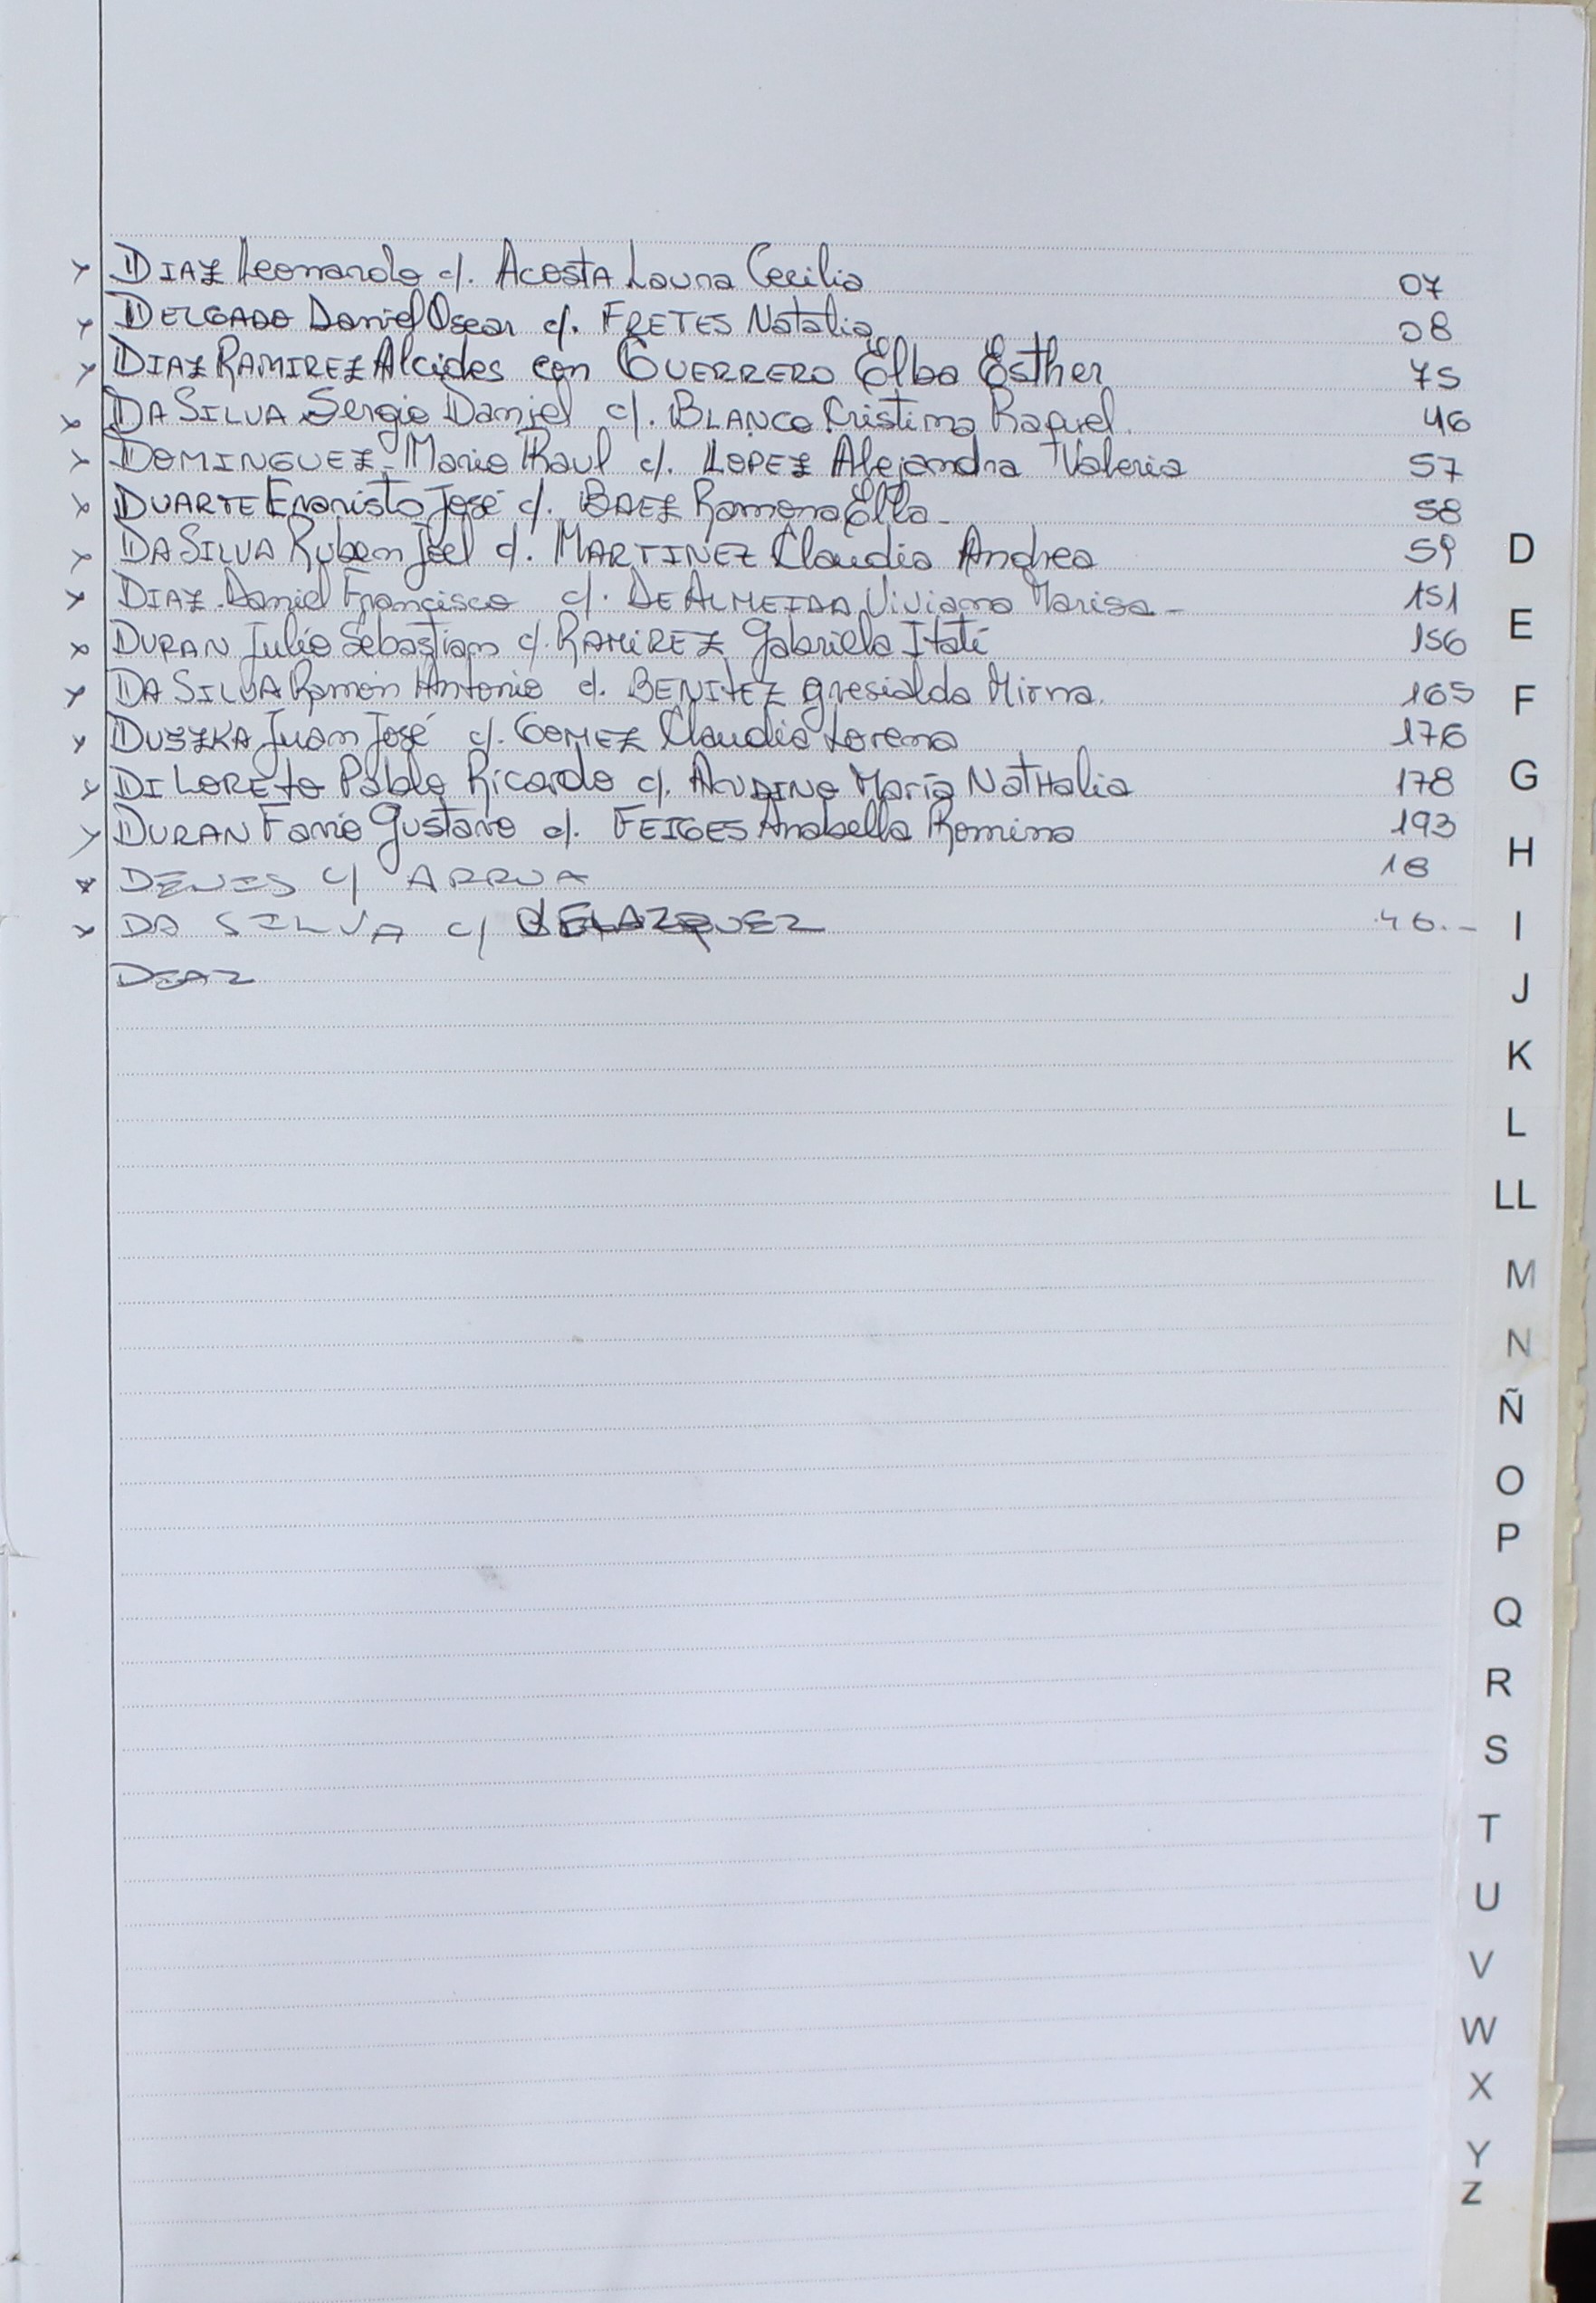 x DIAZ Leonardo c/. ACOSTA Laura Cecilia 07
x DELGADO Daniel Oscar c/. FRETES Natalia 08
x DIAZ RAMIREZ Alcides con GUERRERO Elba Esther 75
x DA SILVA Sergio Daniel c/. BLANCO Cristina Raquel. 46
x DOMINGUEZ Mario Raul c/. LOPEZ Alejandra Valeria 57
x DUARTE Evaristo José c/. BAEZ Ramona Elba- 58
x DA SILVA Ruben Joel c/. MARTINEZ Claudia Andrea 59
x DIAZ Daniel Francisco c/. DE ALMEIDA Viviana Marisa- 151
x DURAN Julio Sebastian c/. RAMIREZ Gabriela Itatí 156
x DA SILVA Ramón Antonio c/. BENITEZ Gresialda Mirna. 165
x DUSZKA Juan José c/. GOMEZ Claudia Lorena 176
x DI LORETO Pablo Ricardo c/. AUDINO María NatHalia 178
x DURAN Favio Gustavo c/. FEIGES Anabella Romina 193
x DENIS c/ ARRUA 18
x DA SILVA c/ VELAZQUEZ 46.-
DIAZ
D
E
F
G
H
I
J
K
L
LL
M
N
Ñ
O
P
Q
R
S
T
U
V
W
X
Y
Z